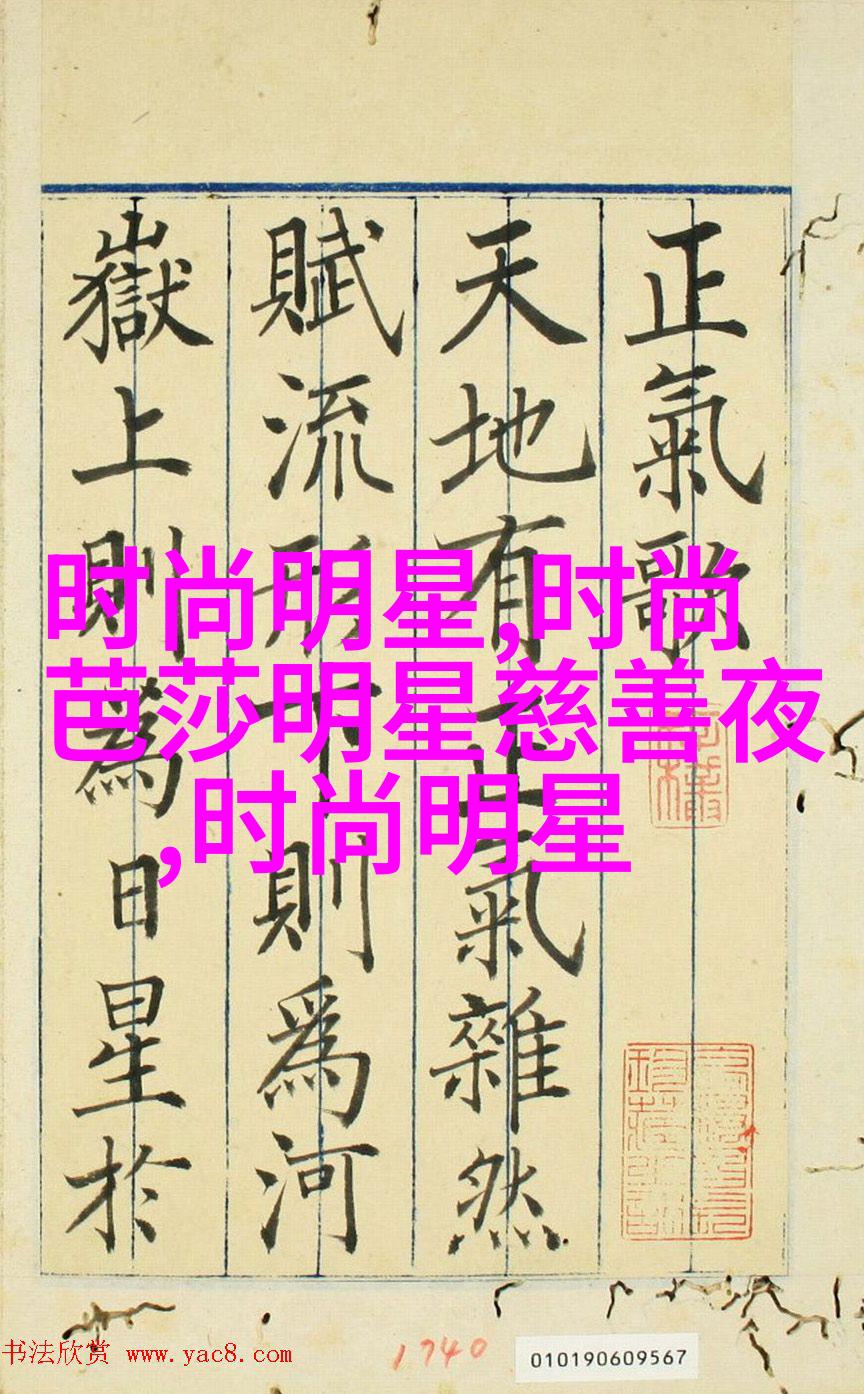 正氣歌
天地有正氣雜然
賦流形下則為河
嶽上則為日星於
时尚明星,时尚
芭莎明星慈善夜
,时尚明星
书法欣赏 www.yac8.com
1740
010190609567